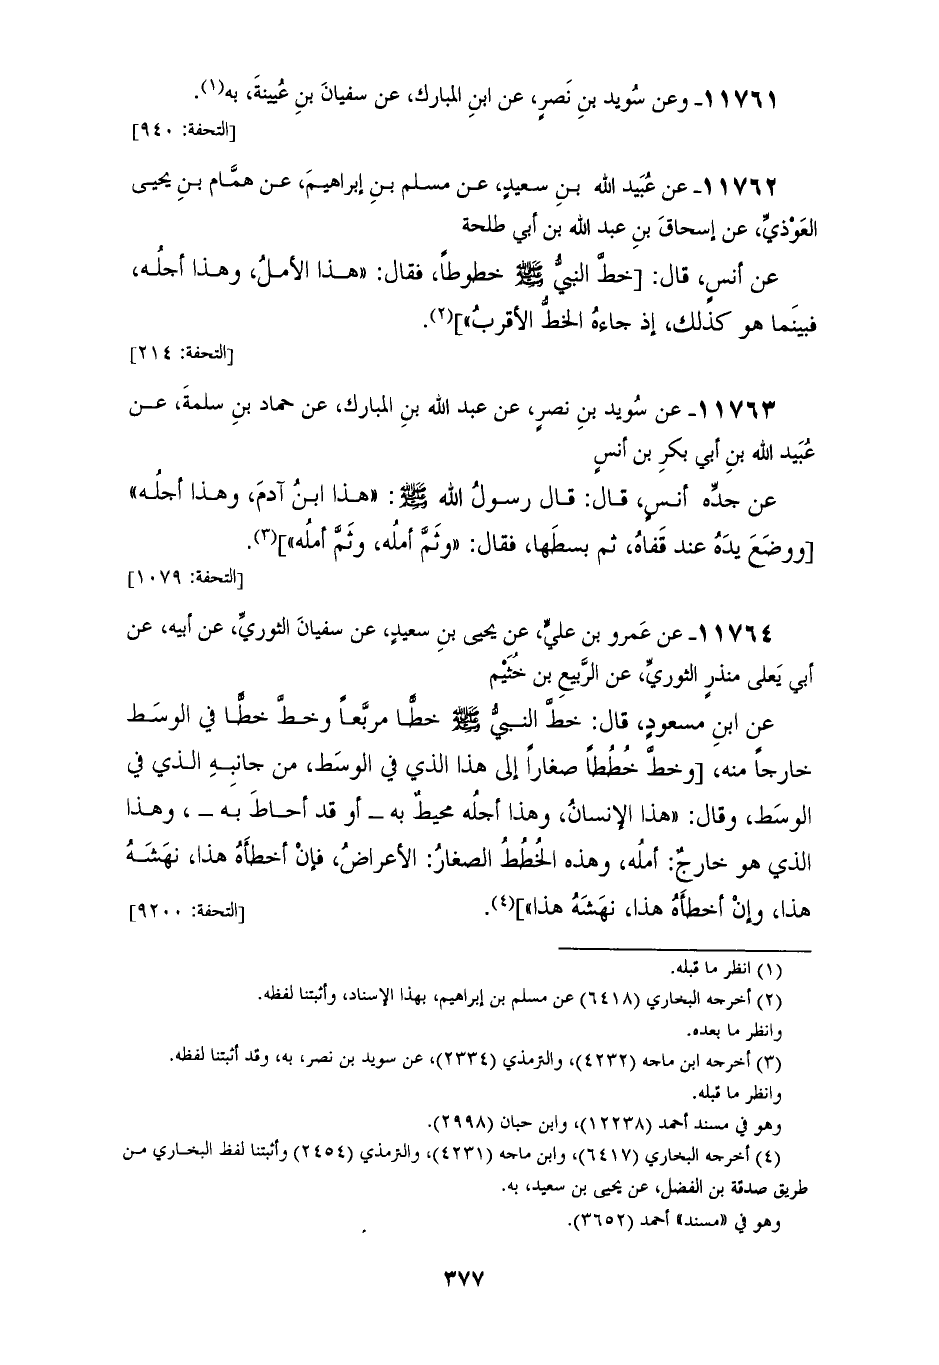 ١١٧٦١ـ وعن سُويد بنِ نَصرٍ، عن ابنِ المبارك، عن سفيانَ بنِ عُيينةَ، به(١).
[التحفة: ٩٤٠]
١١٧٦٢ـ عن عُبَيد الله بنِ سعيدٍ، عن مسلم بنِ إبراهيمَ، عن همَّام بنِ يحيى
العَوْذيِّ، عن إسحاقَ بنِ عبد الله بن أبي طلحة
عن أنسٍ، قال: [خطَّ النبيُّ ﷺ خطوطاً، فقال: «هذا الأملُ، وهذا أجلُه،
فبينَما هو كذلك، إذ جاءهُ الخطُّ الأقربُ»](٢).
[التحفة: ٢١٤]
١١٧٦٣ـ عن سُويد بنِ نصرٍ، عن عبد الله بنِ المبارك، عن حماد بنِ سلمةَ، عن
عُبَيد الله بنِ أبي بكرِ بن أنسٍ
عن جدِّه أنسٍ، قال: قال رسولُ الله ﷺ: «هذا ابنُ آدمَ، وهذا أجلُه»
[ووضَعَ يدَهُ عند قَفاهُ، ثم بسطَها، فقال: «وثَمَّ أملُه، وثَمَّ أملُه»](٣).
[التحفة: ١٠٧٩]
١١٧٦٤ـ عن عَمرو بن عليٍّ، عن يحيى بنِ سعيدٍ، عن سفيانَ الثوريِّ، عن أبيه، عن
أبي يَعلى منذرٍ الثوريِّ، عن الرَّبيعِ بن خُثَيْم
عن ابنِ مسعودٍ، قال: خطَّ النبيُّ ﷺ خطًّا مربَّعاً وخطَّ خطًّا في الوسَط
خارجاً منه، [وخطَّ خُطُطاً صغاراً إلى هذا الذي في الوسَط، من جانبِهِ الذي في
الوسَط، وقال: «هذا الإنسانُ، وهذا أجلُه محيطٌ به ـ أو قد أحاطَ به ـ ، وهذا
الذي هو خارجٌ: أملُه، وهذه الخُطُطُ الصغارُ: الأعراضُ، فإنْ أخطأَهُ هذا، نهَشَهُ
هذا، وإنْ أخطأَهُ هذا، نهَشَهُ هذا»](٤). [التحفة: ٩٢٠٠]
(١) انظر ما قبله.
(٢) أخرجه البخاري (٦٤١٨) عن مسلم بن إبراهيم، بهذا الإسناد، وأثبتنا لفظه.
وانظر ما بعده.
(٣) أخرجه ابن ماجه (٤٢٣٢)، والترمذي (٢٣٣٤)، عن سويد بن نصر، به، وقد أثبتنا لفظه.
وانظر ما قبله.
وهو في مسند أحمد (١٢٢٣٨)، وابن حبان (٢٩٩٨).
(٤) أخرجه البخاري (٦٤١٧)، وابن ماجه (٤٢٣١)، والترمذي (٢٤٥٤) وأثبتنا لفظ البخاري من
طريق صدقة بن الفضل، عن يحيى بن سعيد، به.
وهو في «مسند» أحمد (٣٦٥٢).
٣٧٧